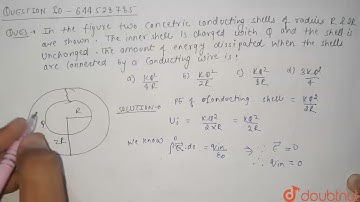 QUESTION ID - 644528735
QUES:- In the figure two concentric conducting shells of radius R & 2R
are shown. The inner shell is charged with Q and the shell is
Uncharged. The amount of energy dissipated when the shells
are connected by a Conducting wire is:
a) KQ²/4R b) KQ²/2R c) KQ²/8R d) 3KQ²/4
SOLUTION:- PE of Conducting shell = KQ²/2R
Ui = KQ²/2×R = KQ²/2R
We know ∮E.ds = qin/ε0 ⇒ ∵ E=0
∴ qin=0
R
Q
2R
doubtnut